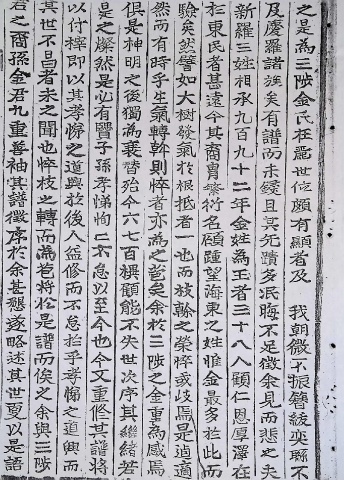 之是爲三陟金氏在麗世位頗有顯者及　我朝微不振簪紱奕縣不
及慶羅諸族矣有譜而未鋟且其先蹟多泯晦不足徵余見而悲之夫
新羅三姓相承九百九十二年金姓爲王者三十八人顧仁恩厚澤在
於東民者甚遠今其裔冑繁衍名碩踵望海東之姓惟金最多於此而
驗矣然譬如大樹發氣於根抵者一也而枝幹之榮悴或歧焉是適適
然而有時乎生氣轉斡則悴者亦爲之榮矣余於三陟之金重爲感焉
俱是神明之後獨爲衰替殆今六七百禩顧能不失世次序其繼緖若
是之燦然是必有賢子孫孝悌怐仁不怠以至今也今又重修其譜將
以付梓即以其孝悌之道興於後人益修而不怠抬乎孝悌之道興而
其世不昌者未之聞也悴枝之轉而爲苞將於是譜而俟之余與三陟
君之裔孫金君九重善袖其譜徵序於余甚懇遂略述其世夏以是語